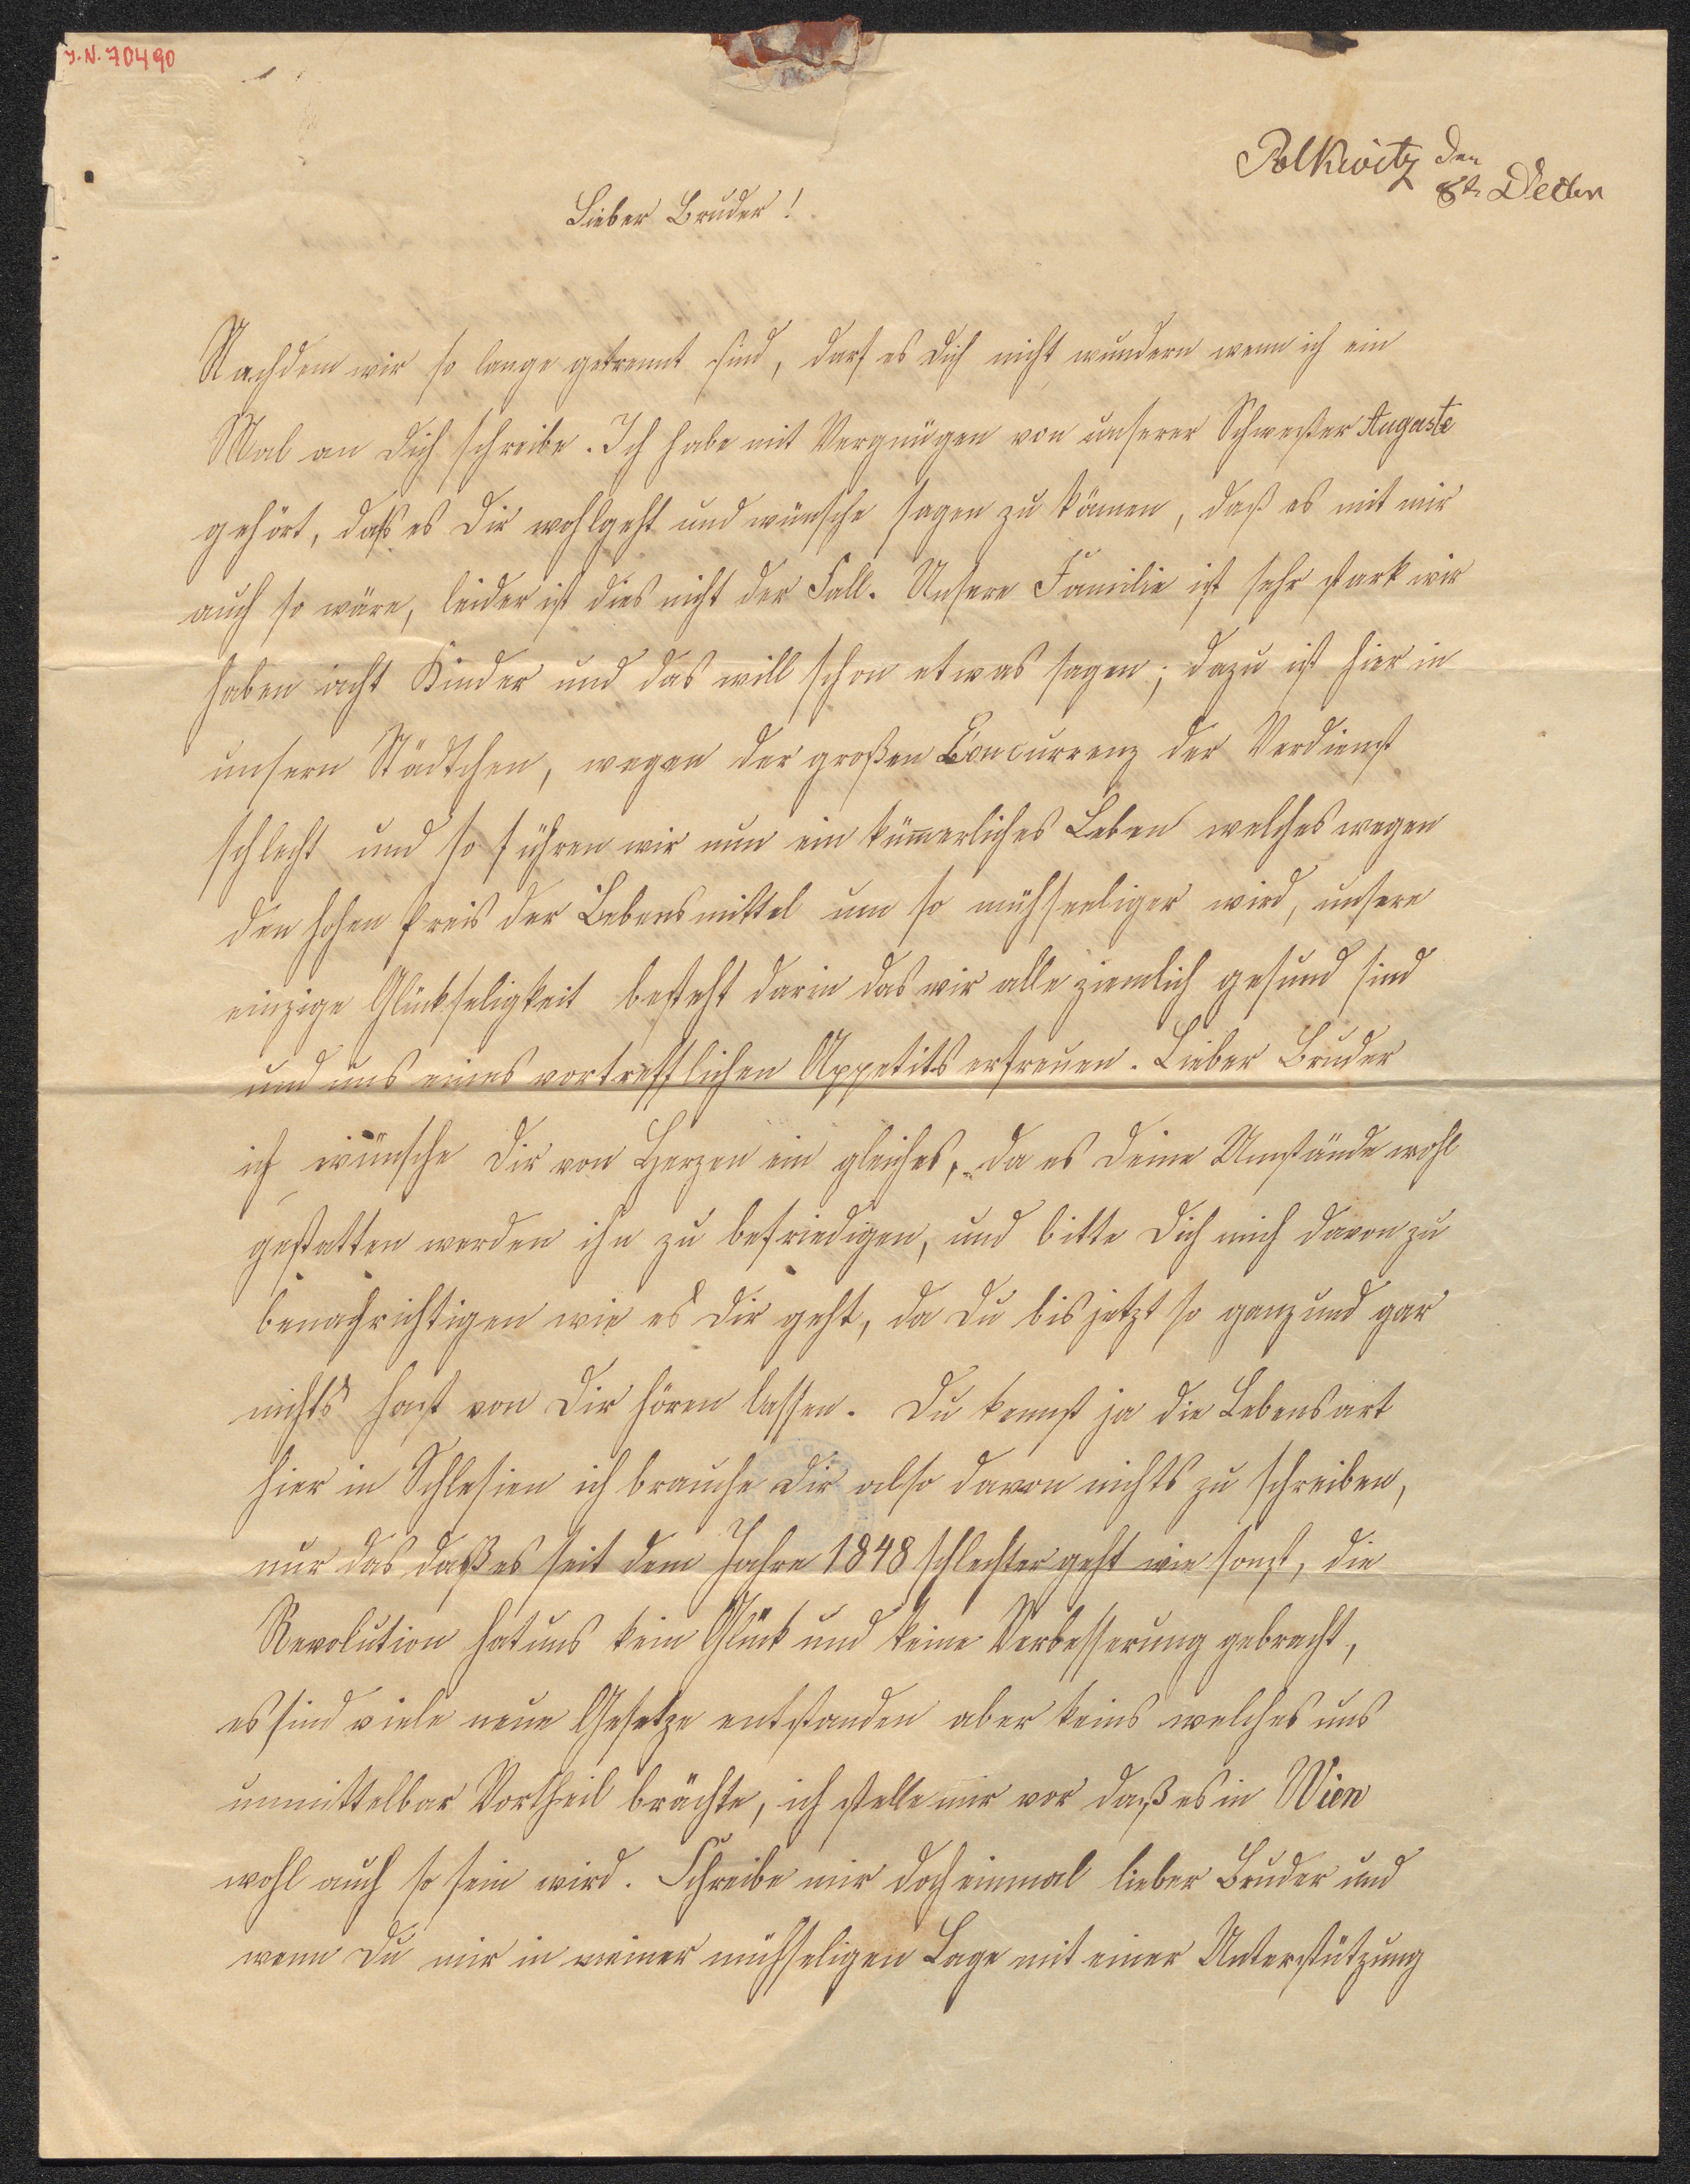 J.N. 70490
Polkwitz den
8t Decbr
Lieber Bruder!
Nachdem wir so lange getrennt sind, darf es dich nicht wundern wenn ich ein
Mal an dich schreibe. Ich habe mit Vergnügen von unserer Schwester Auguste
gehört, daß es dir wohlgeht und wünsche sagen zu können, daß es mit mir
auch so wäre, leider ist dies nicht der Fall. Unsere Familie ist sehr stark wir
haben acht Kinder und das will schon etwas sagen; dazu ist hier in
unsern Städtchen, wegen der großen Concurrenz der Verdienst
schlecht und so führen wir nun ein küm̄erliches Leben welches wegen
den hohen Preis der Lebensmittel um so mühseeliger wird, unsere
einzige Glückseligkeit besteht darin das wir alle ziemlich gesund sind
und uns eines vortrefflichen Appetits erfreuen. Lieber Bruder
ich wünsche dir von Herzen ein gleiches, da es deine Umstände wohl
gestatten werden ihn zu befriedigen, und bitte dich mich davon zu
benachrichtigen wie es dir geht, da du bis jetzt so ganz und gar
nichts hast von dir hören lassen. Du kennst ja die Lebensart
hier in Schlesien ich brauche dir also davon nichts zu schreiben,
nur das daß es seit dem Jahre 1848 schlechter geht wie sonst, die
Revolution hat uns kein Glück und keine Verbesserung gebracht,
es sind viele neue Gesetze entstanden aber keins welches uns
unmittelbar Vortheil brächte, ich stelle mir vor daß es in Wien
wohl auch so sein wird. Schreibe mir doch einmal lieber Bruder und
wenn du mir in meiner mühseligen Lage mit einer Unterstützung